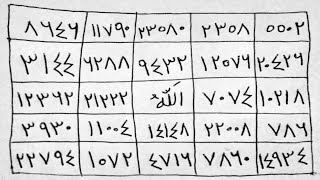 ٥٥٠٢ ٢٣٥٨ ٢٣٥٨٠ ١١٧٩٠ ٨٦٤٦
٢٠٤٣٦ ١٢٥٧٦ ٩٤٣٢ ٦٢٨٨ ٣١٤٤
١٠٢١٨ ٧٠٧٤ اللّٰه ٢١٢٢٢ ١٣٣٦٢
٧٨٦ ٢٢٠٠٨ ١٤١٤٨ ١١٠٠٤ ٣٩٣٠
١٤٩٣٤ ٧٨٦٠ ٤٧١٦ ١٥٧٢ ٢٢٧٩٤